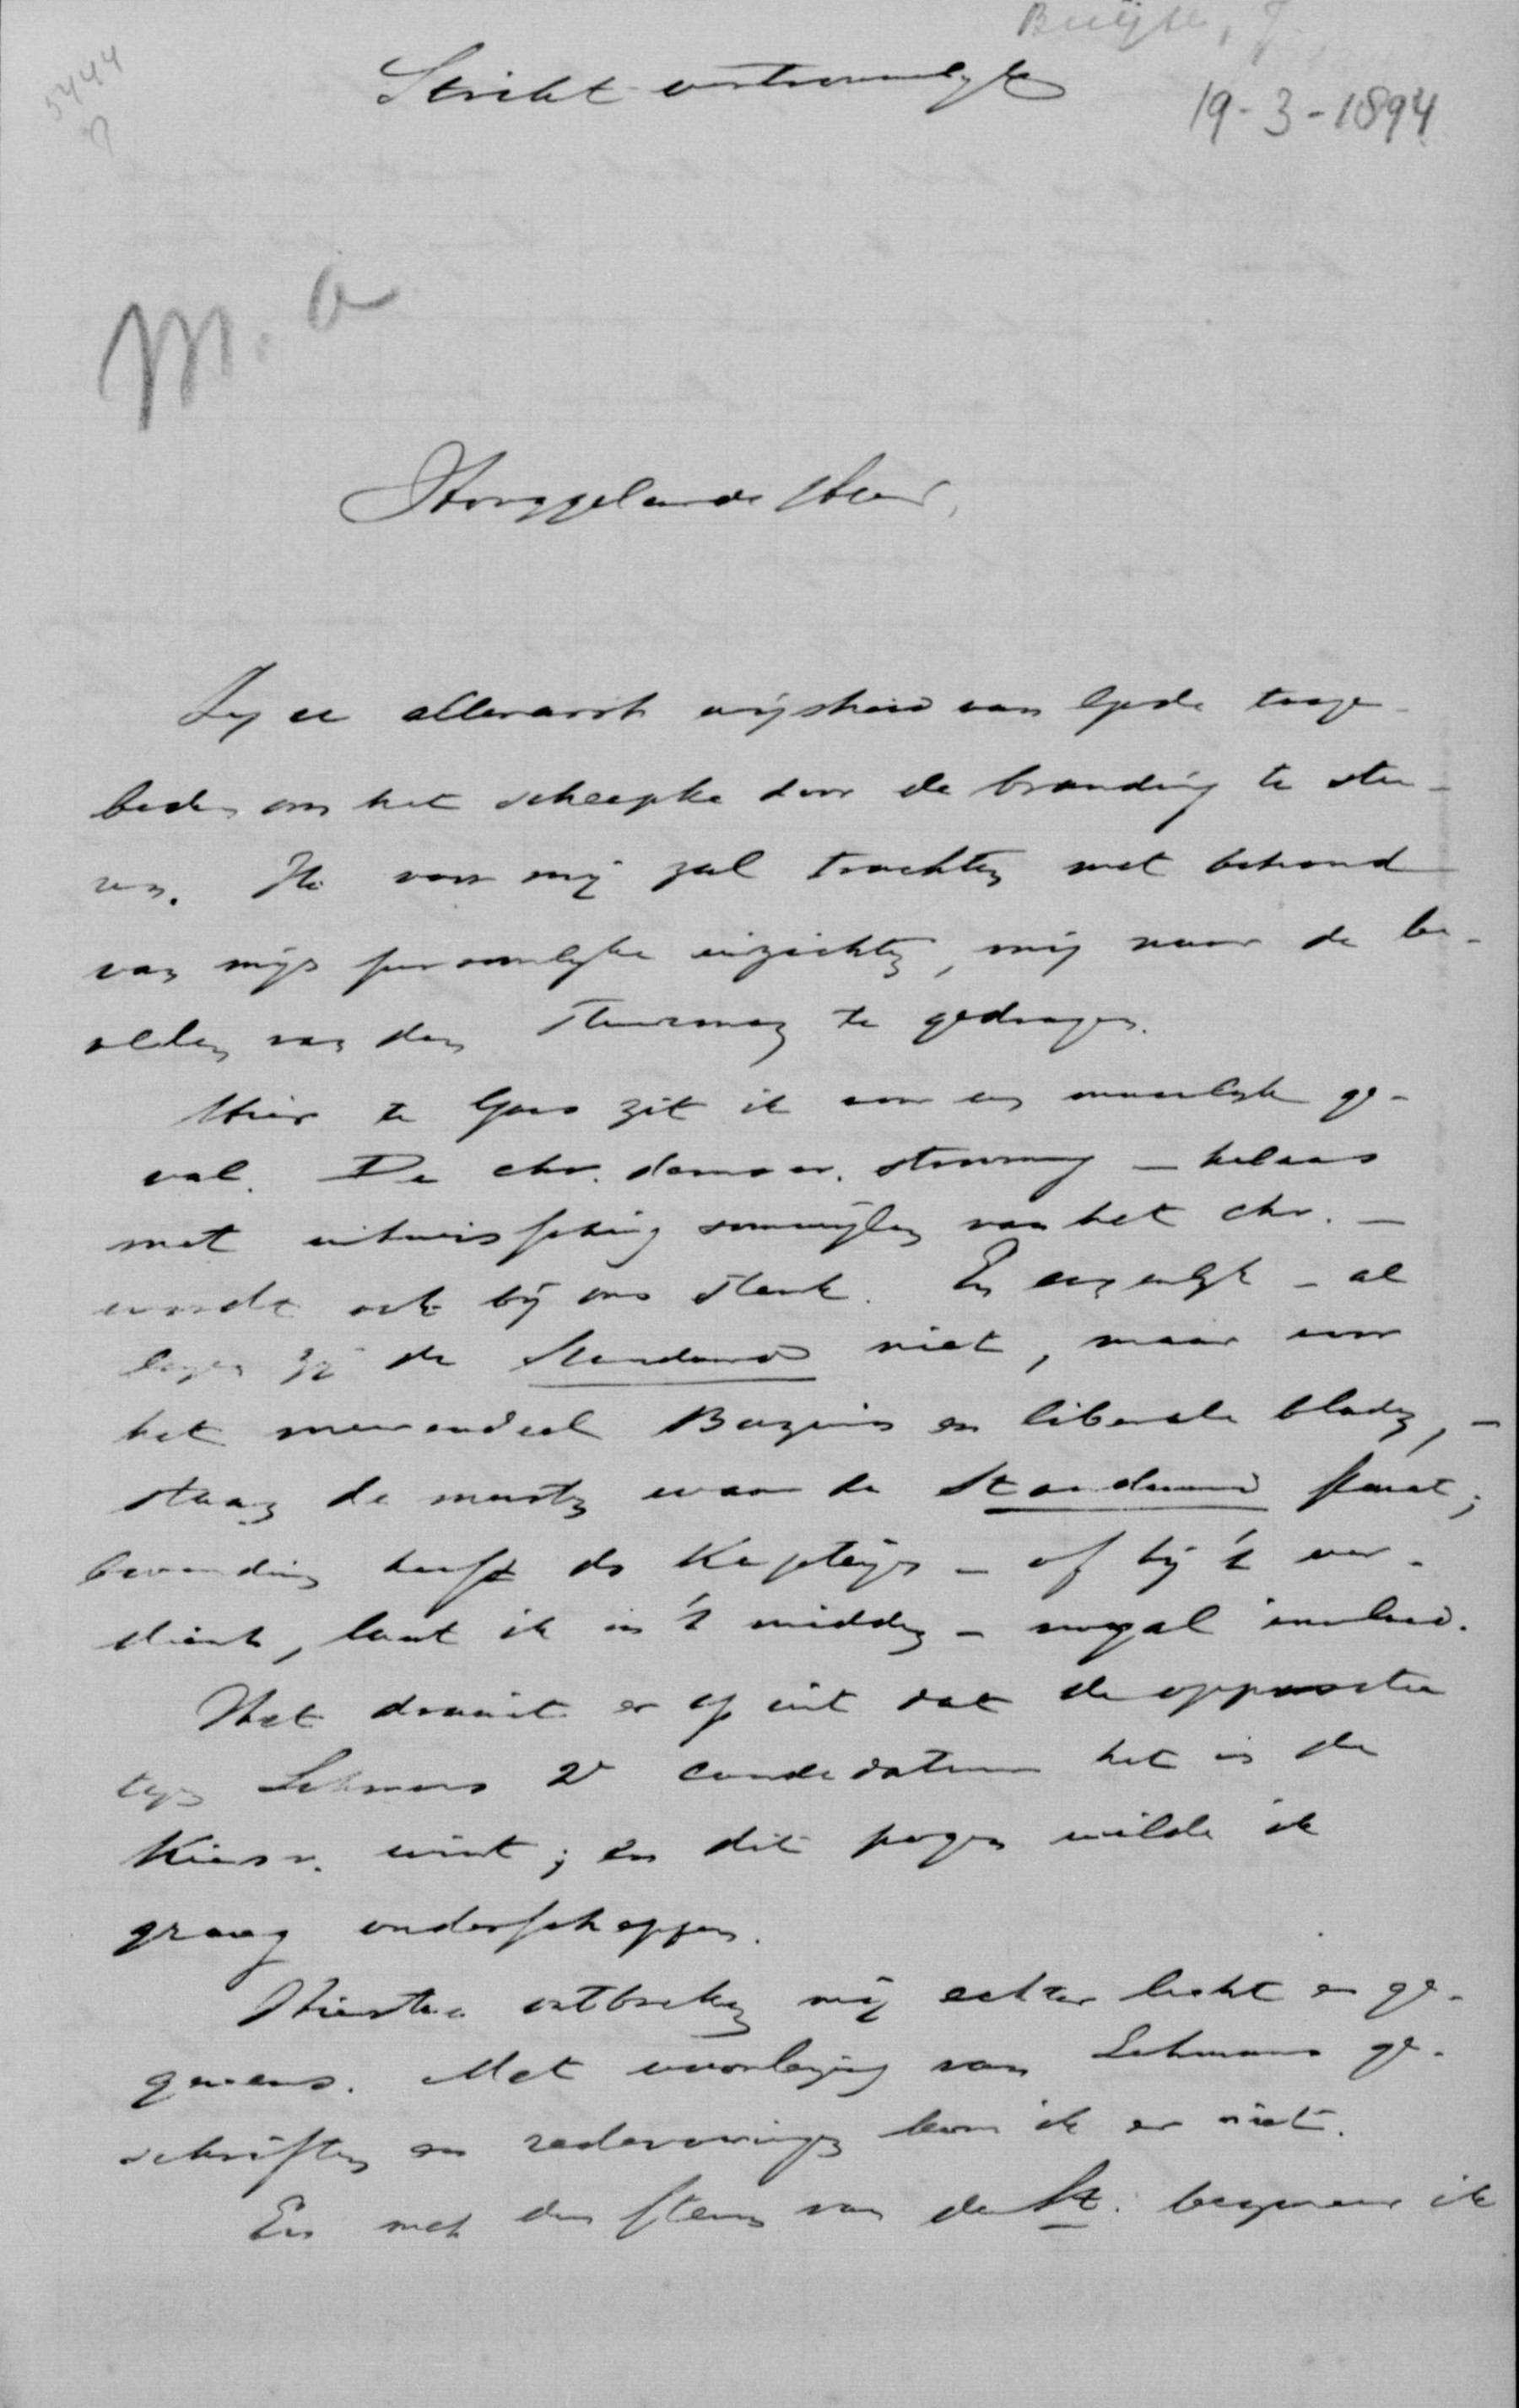 5444
Buijse, J
Strikt vertrouwelijk
19-3-1894
M. a
Hooggeleerde Heer,
Zij u allereerst wijsheid van Gode toege-
beden om het scheepke door de branding te stu-
ren. Ik voor mij zal trachten met behoud
van mijn persoonlijke inzichten, mij naar de be-
velen van den stuurman te gedragen.
Hier te Goes zit ik voor een moeielijk ge-
val. De chr. democr. strooming - helaas
met uitwissching somwijlen van het chr. -
wordt ook bij ons sterk. En eigenlijk - al
lezen zij de Standaard niet, maar voor
het meerendeel en liberale bladen, -
staan de meesten waar de Standaard staat;
ds Kapteijn - of hij 't ver-
dient, laat ik in 't midden - nogal invloed.
Het draait er op uit dat de oppositie
tegen Lohmans candidatuur het in de
Kiesv. wint; en dit pogen wilde ik
graag onderscheppen.
Hiertoe ontbreken mij echter licht en ge-
gevens. Met voorlezing van Lohmans ge-
schriften en redevoeringen kom ik er niet.
En met den steun van de St. begeer ik